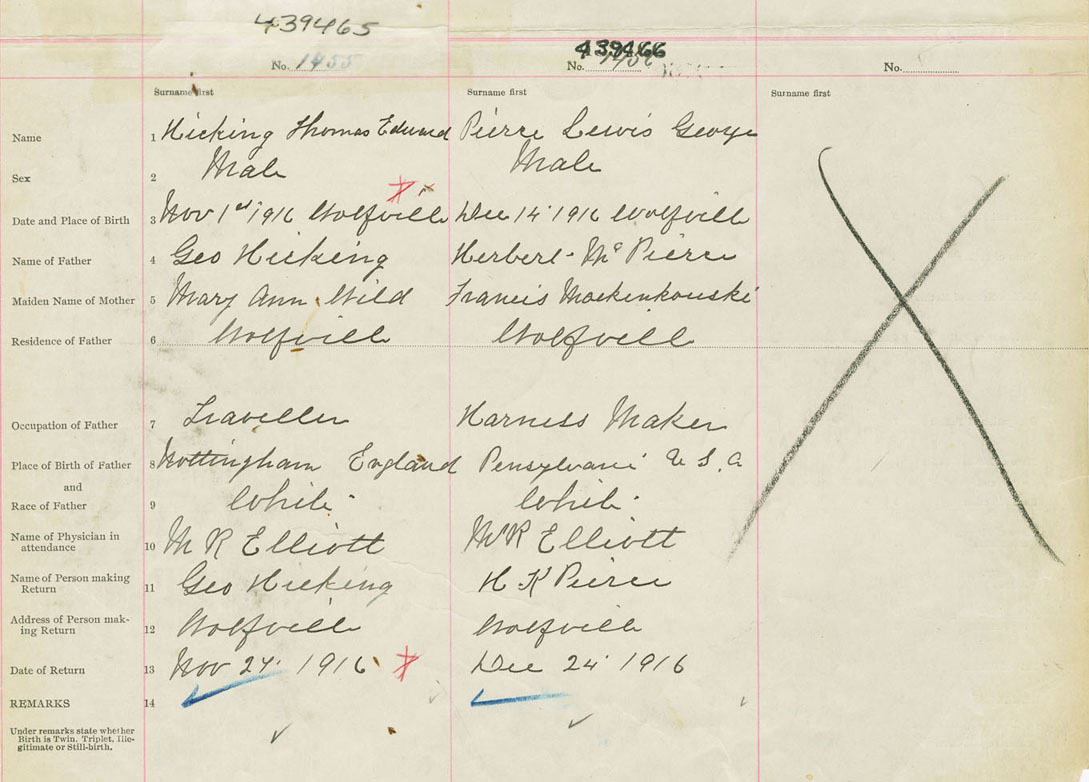 439465
439466
No. 1455
No. 1456
No.
Surname first
Surname first
Surname first
Name 1 Hicking Thomas Edward Pierre Lewis George
Sex 2 Male Male
Date and Place of Birth 3 Nov 1st 1916 Wolfville Dec 14 1916 Wolfville
Name of Father 4 Geo Hicking Herbert Pierce
Maiden Name of Mother 5 Mary Ann Wild Francis Mackenkouski
Residence of Father 6 Wolfville Wolfville
Occupation of Father 7 Traveller Harness Maker
Place of Birth of Father 8 Nottingham England Pensylvani U S. A
and
Race of Father 9 White White
Name of Physician in
attendance 10 M R Elliott M R Elliott
Name of Person making
Return 11 Geo Hicking H K Pierce
Address of Person mak-
ing Return 12 Wolfville Wolfville
Date of Return 13 Nov 24 1916 Dec 24 1916
REMARKS 14
Under remarks state whether
Birth is Twin, Triplet, Ille-
gitimate or Still-birth.